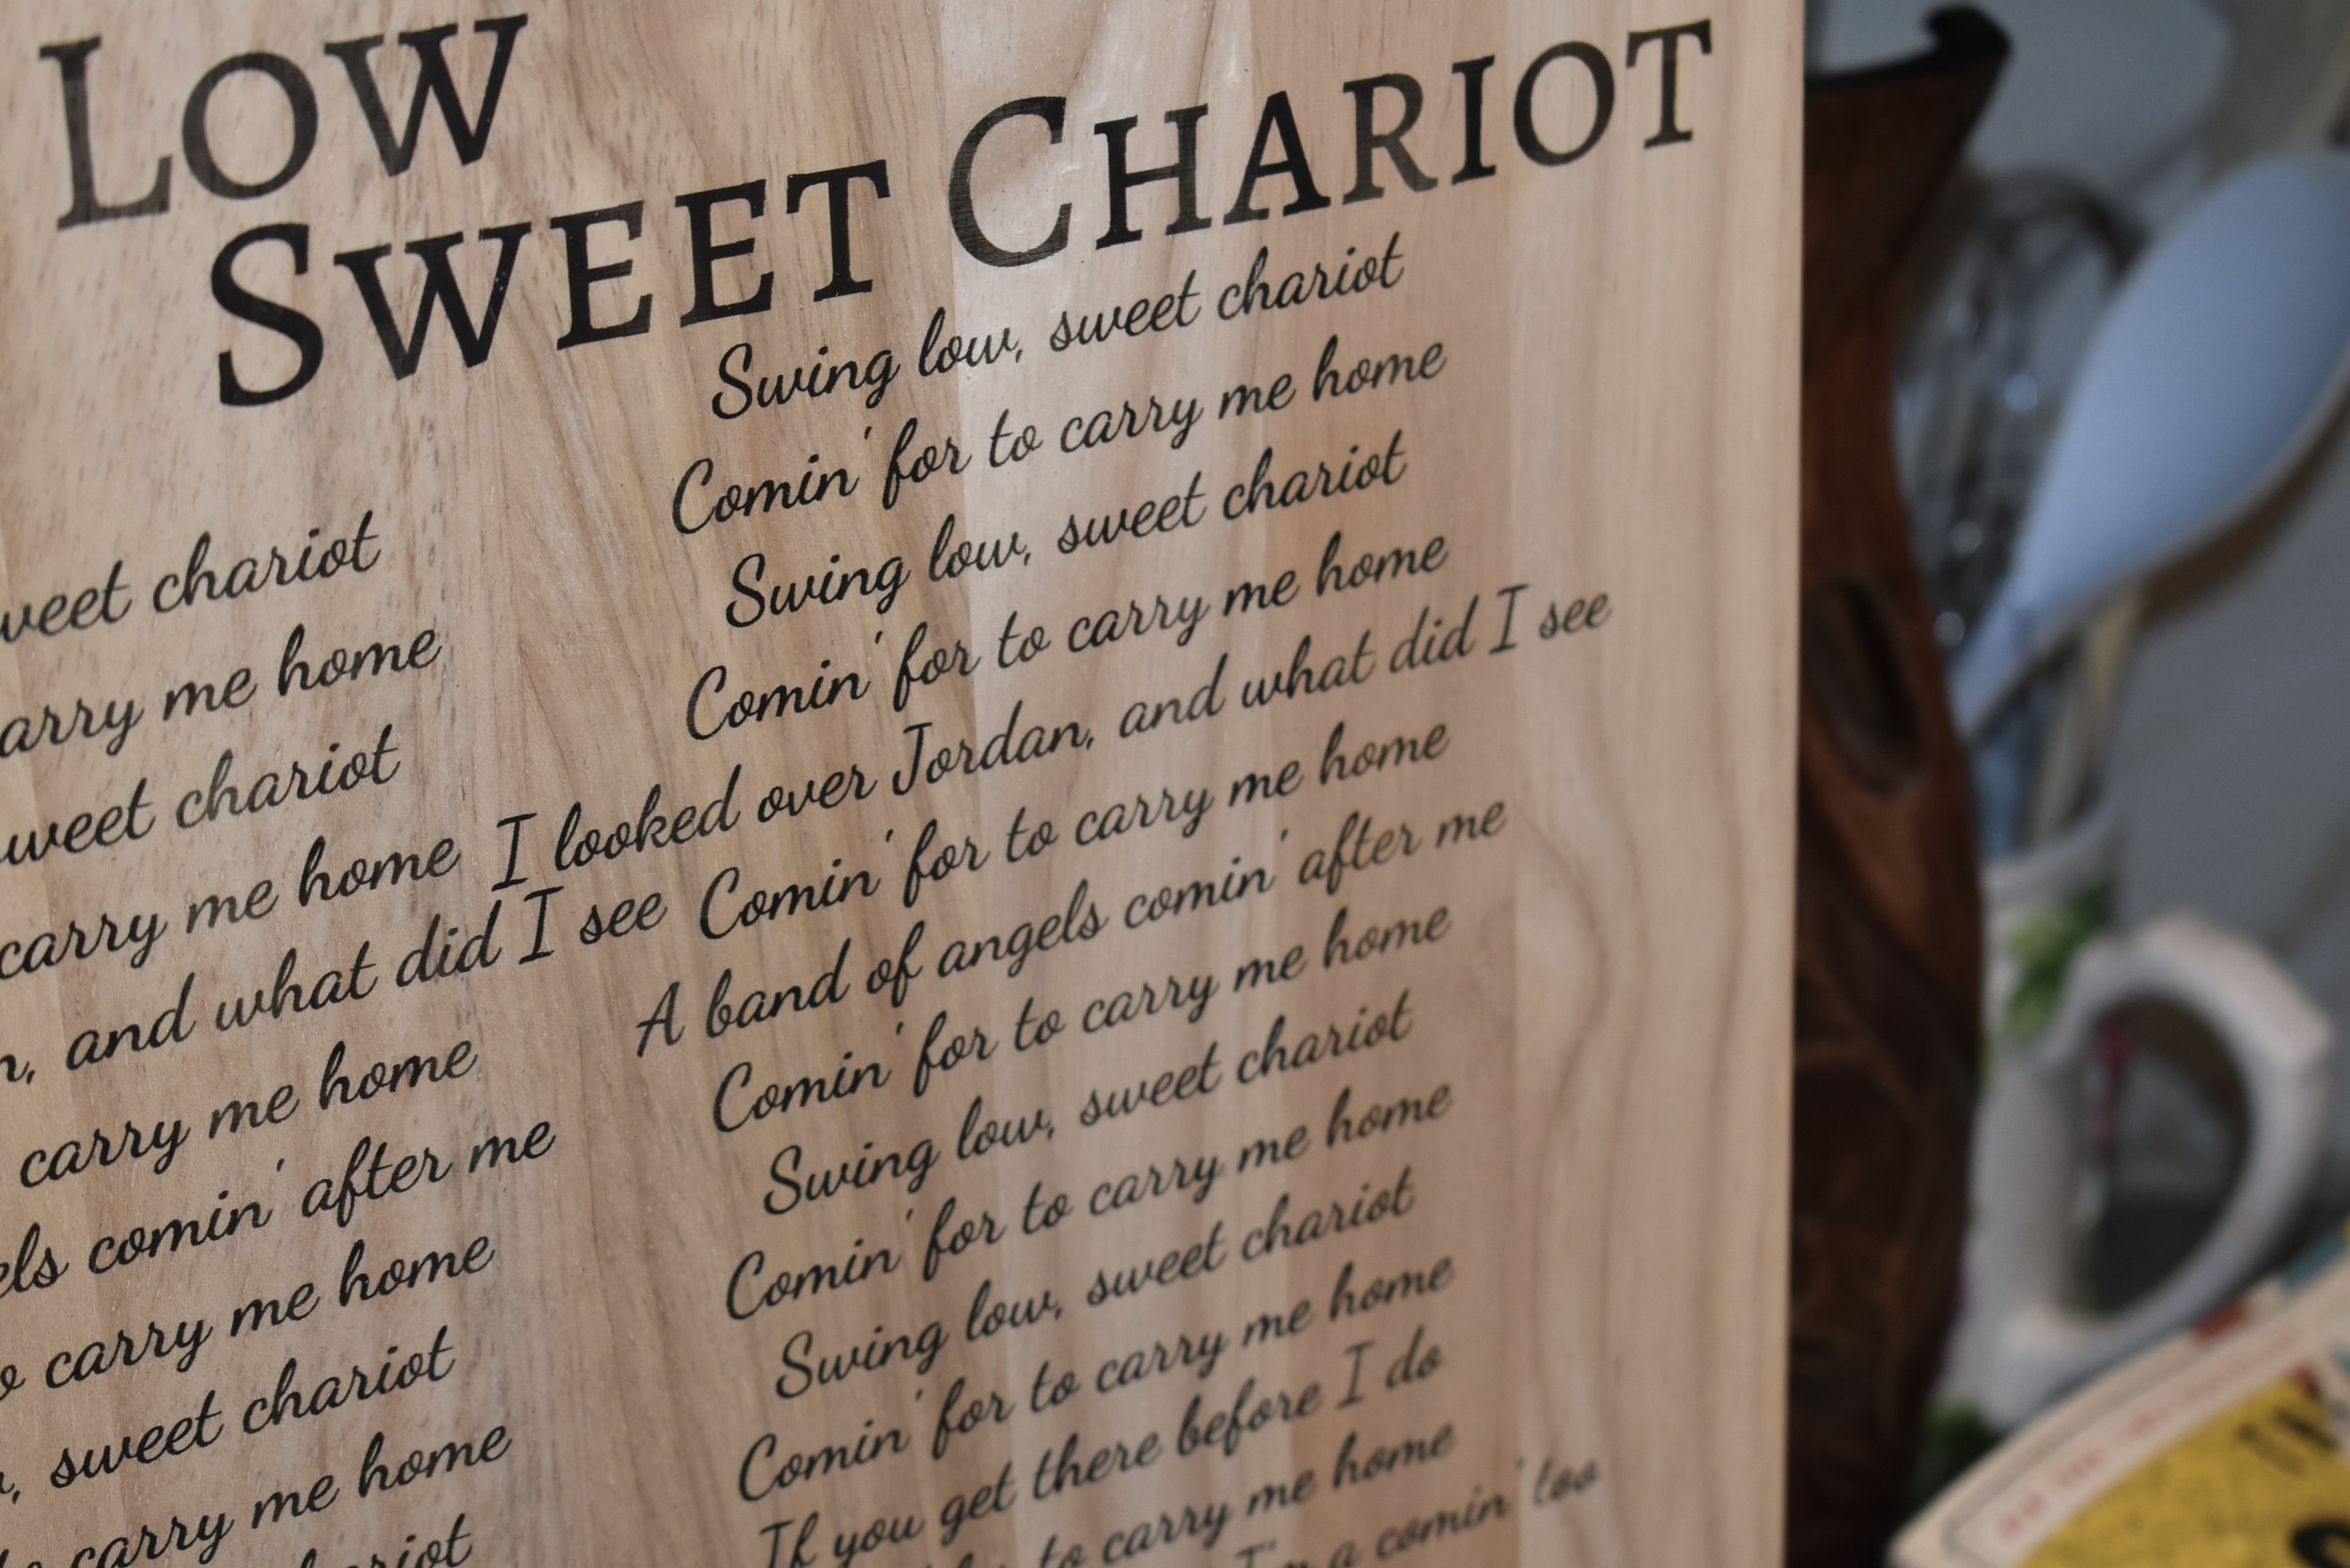 LOW
SWEET CHARIOT
weet chariot
arry me home
weet chariot
carry me home
n, and what did I see
carry me home
els comin' after me
o carry me home
, sweet chariot
carry me home
hariot
Swing low, sweet chariot
Comin' for to carry me home
Swing low, sweet chariot
Comin' for to carry me home
I looked over Jordan, and what did I see
Comin' for to carry me home
A band of angels comin' after me
Comin' for to carry me home
Swing low, sweet chariot
Comin' for to carry me home
Swing low, sweet chariot
Comin' for to carry me home
If you get there before I do
to carry me home
a comin' too